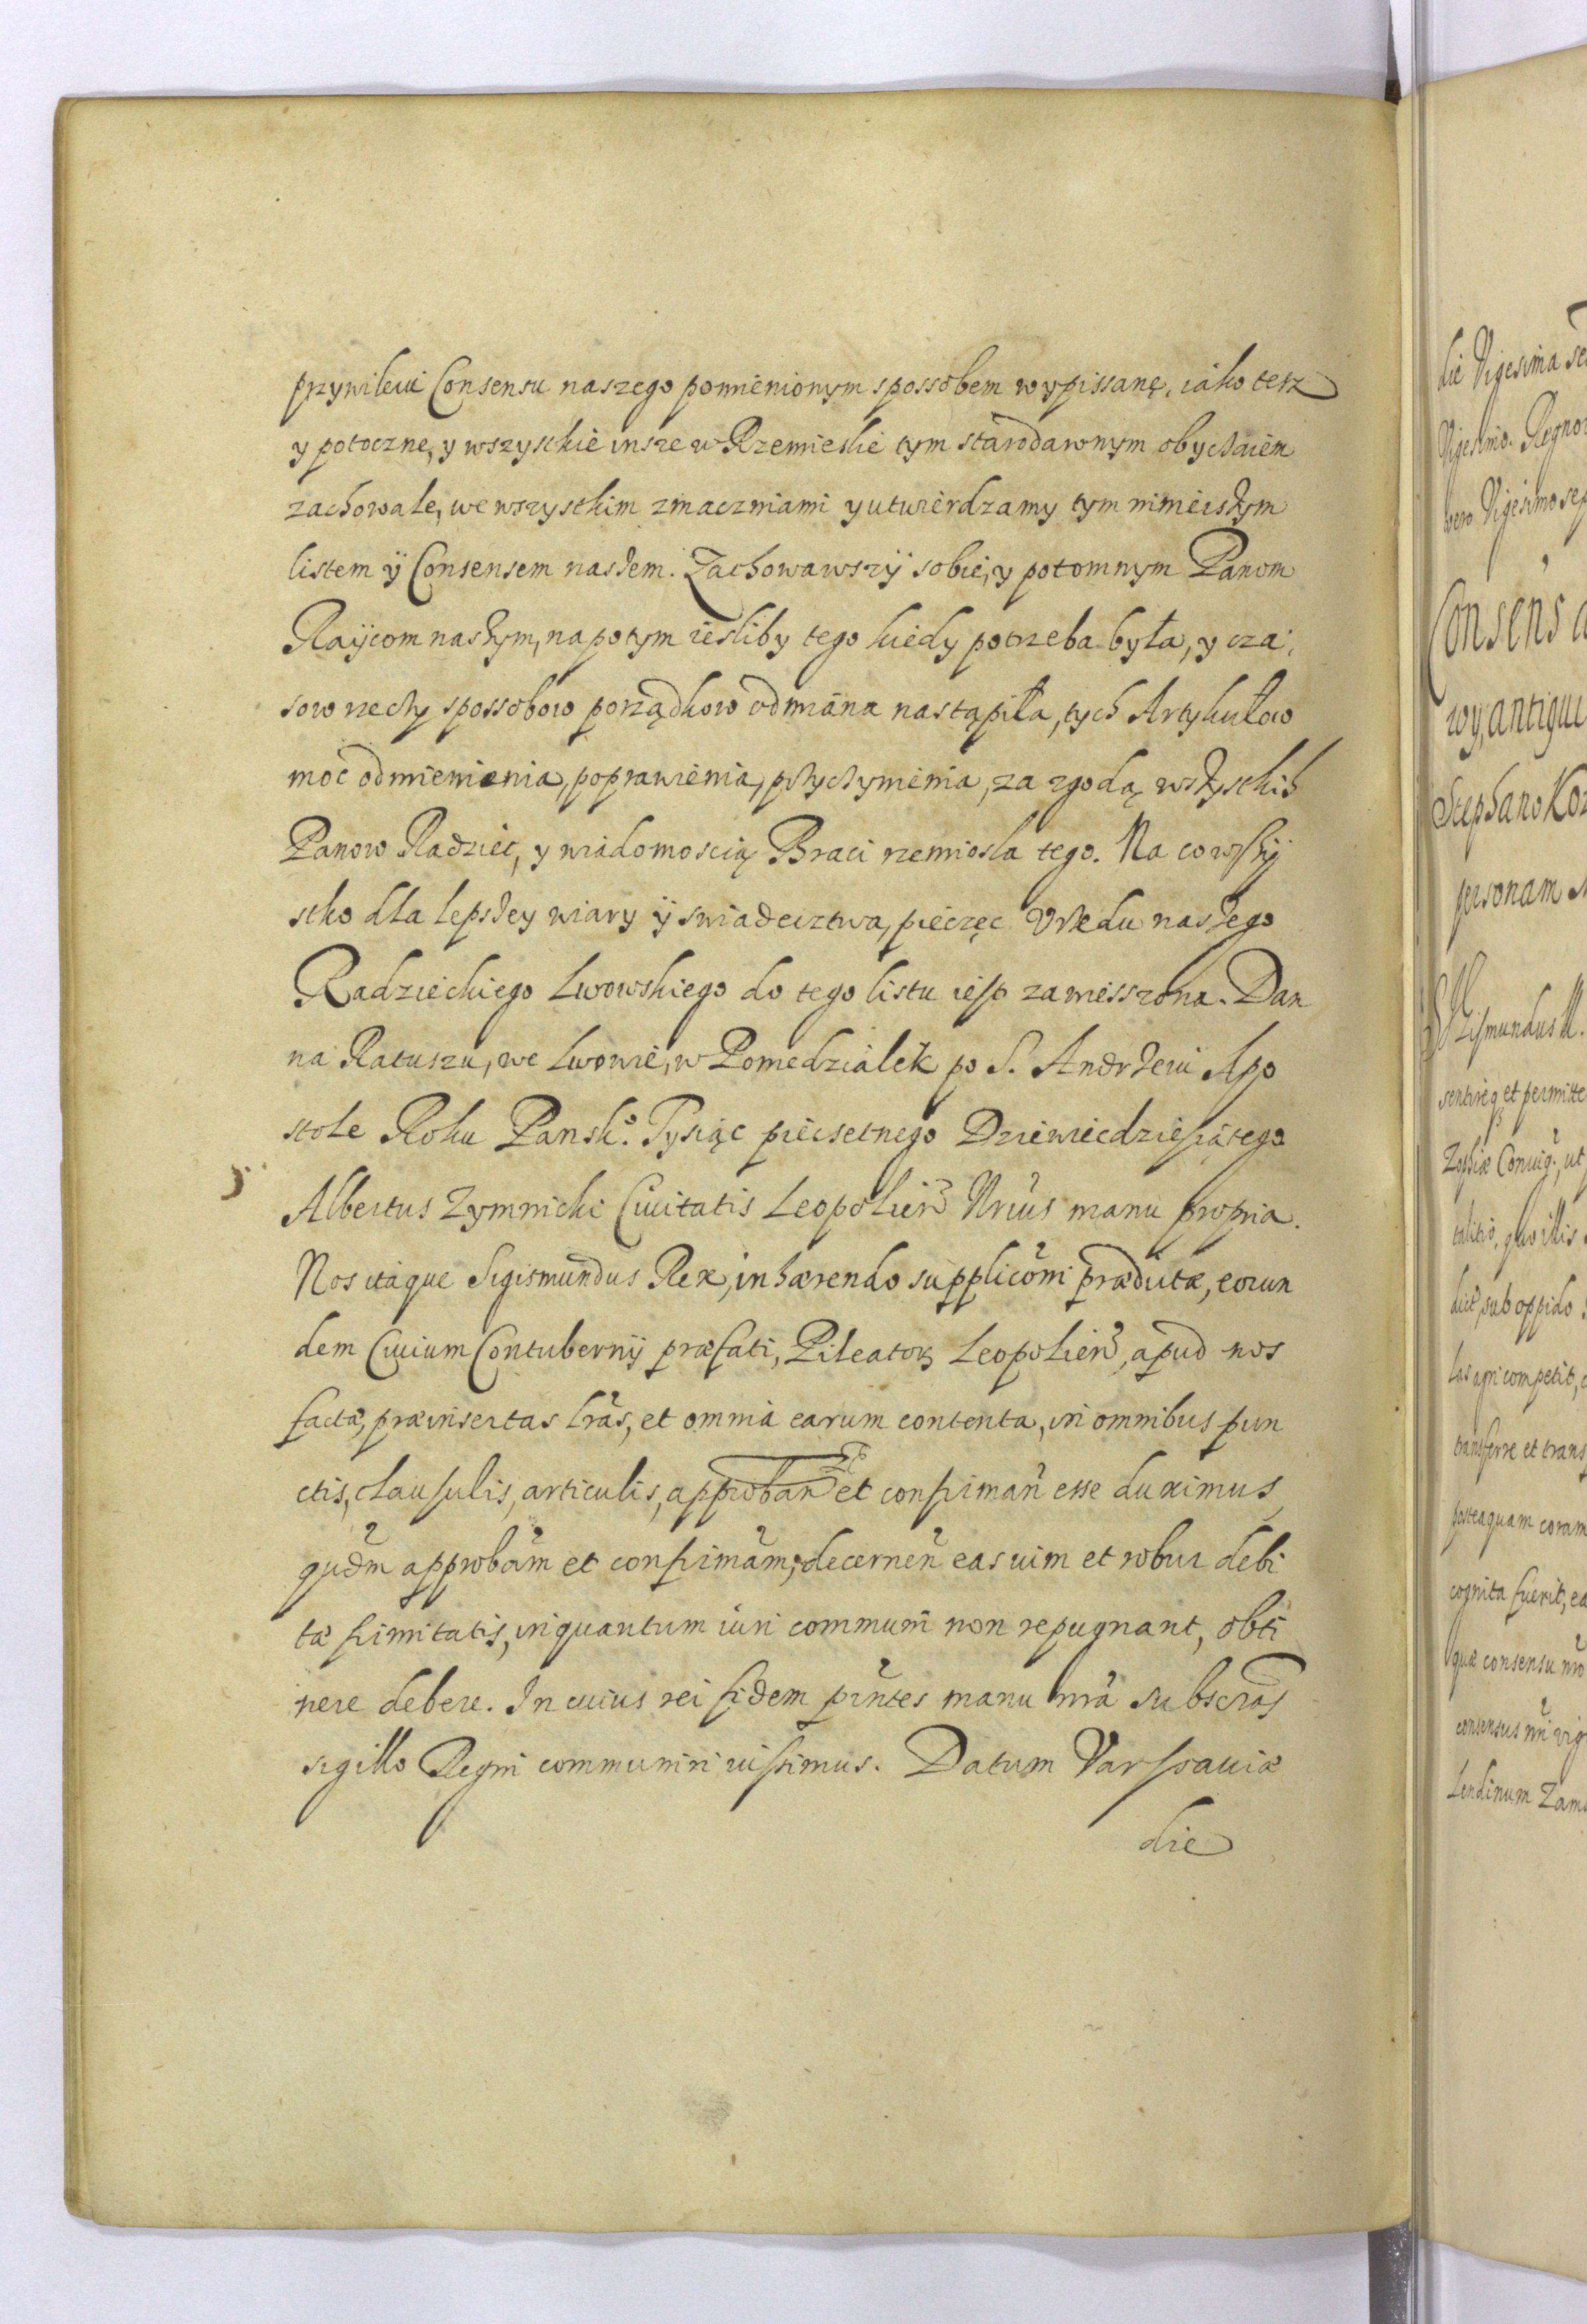 przywileiu Consensu naszego pomienionym spossobem wypissanę, iáko tesz
y potoczne, y wszystkie insze w Rzemieslie tym starodawnym obyczaiem
zachowałe, we wszystkim zmaczniami y utwierdzamy tym ninieiszym
listem ÿ Consensem naszem. Zachowawszÿ sobie, y potomnym Panom
Raÿcom naszym, na potym iesliby tego kiedy potrzeba była, y cza,
sow rzeczy spossobow porządkow odmiana nastąpiła, tych Artykułow
moc odmienienia, poprawienia, przyczynienia, za zgodą wszystkich
Panow Radziec, y wiadomoscią Braci rzemiosła tego. Na co wszÿ
stko dla lepszey wiary ÿ swiadecztwa, pieczęc Vrzedu naszego
Radzieckiego Lwowskiego do tego listu iest zawiesszona. Dan
na Ratuszu, we Lwowie, w Poniedziałek po S. Andrzeiu Apo
stole Roku Pansk.º Tysiąc piecsetnego Dziewiecdziesiątego
Albertus Zymnicki Ciuitatis Leopolień Nrius manu propria.
Nos itaque Sigismundus Rex, inhærendo supplicõni prædictæ, eorun
dem Ciuium Contubernij præfati, Pileatoꝝ Leopolień, apud nos
factæ, præinsertas lrãs, et omnia earum contenta, in omnibus pun
ctis, clausulis, articulis, approban̄ et confirman̄ esse duximus,
qudẽm approbãm et confirmãm, decernen̄ eas uim et robur debi
tæ firmitatis, inquantum iuri communi non repugnant, obti
nere debere. In cuius rei fidem pñtes manu nrã subscras̃
sigillo Regni communiri iussimus. Datum Varssauiæ
die
die Vigesima se
Vigesimo. Regnor
vero Vigesimo sep
Consens a
wy, antiqui
Stephano Koz
personam
Sigismundus III.
sentireq et permitte
Zophiæ Coniug, ut
talitio, quo illis
dict, sub oppido
las agri competit,
transferre et trans
posteaquam coram
cognita fuerit, ea
quæ consensu nr̃o
consensus nr̃i vig
Lendinum Zam